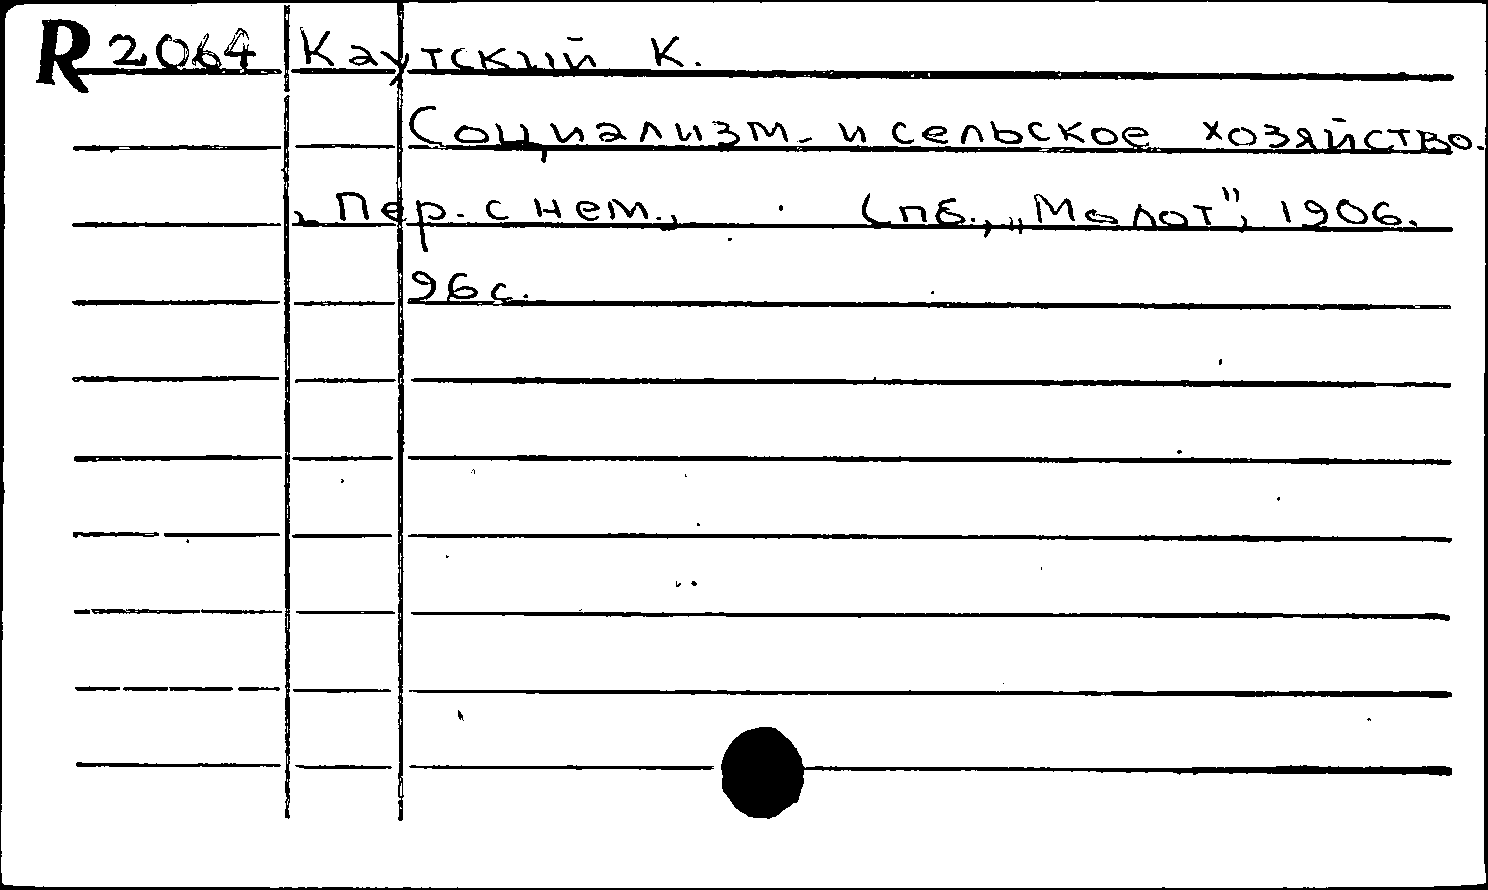 R 2064 Каутский К.
Социализм и сельское хозяйство.
Пер. с нем., Спб., „Молот", 1906.
96 с.